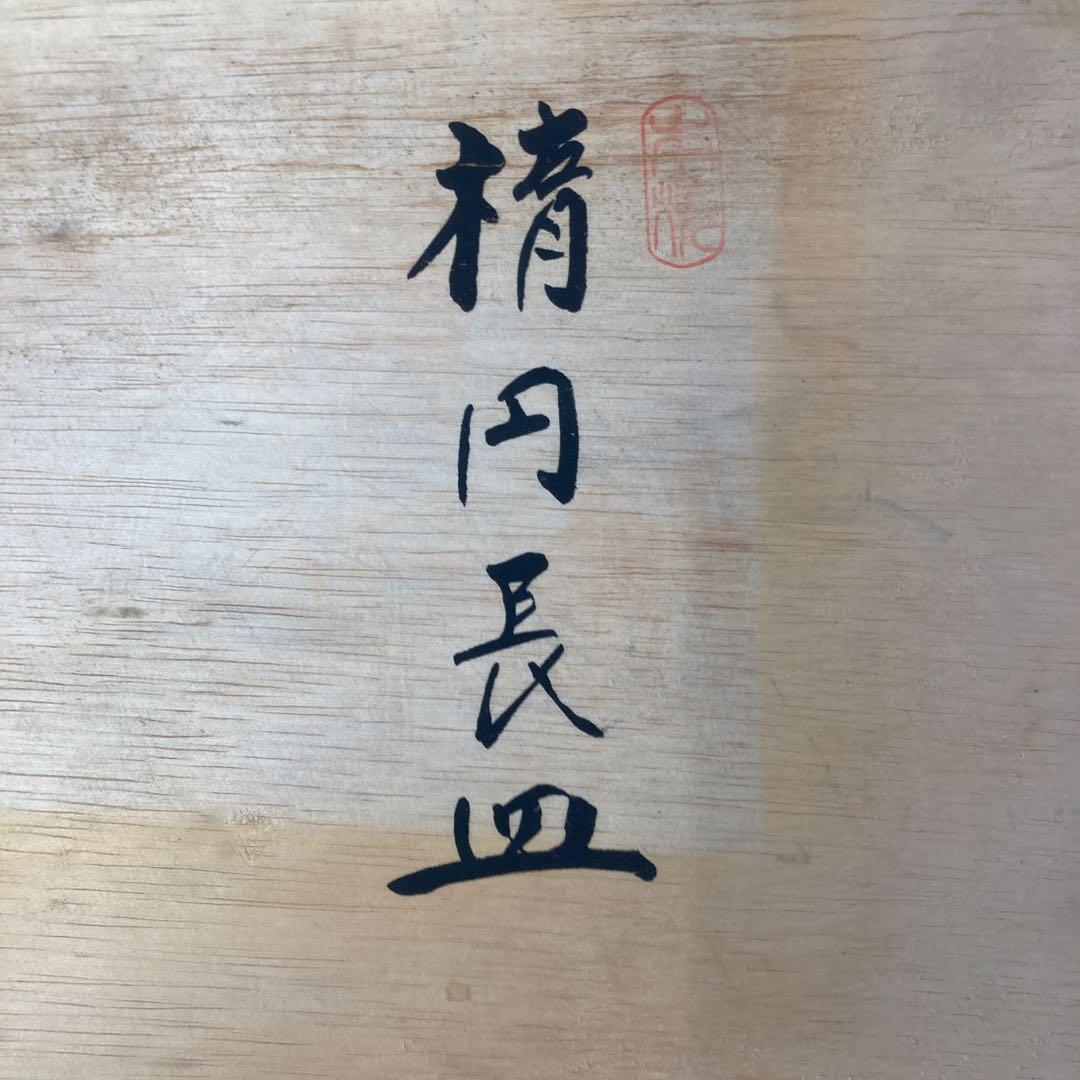 楕円長皿